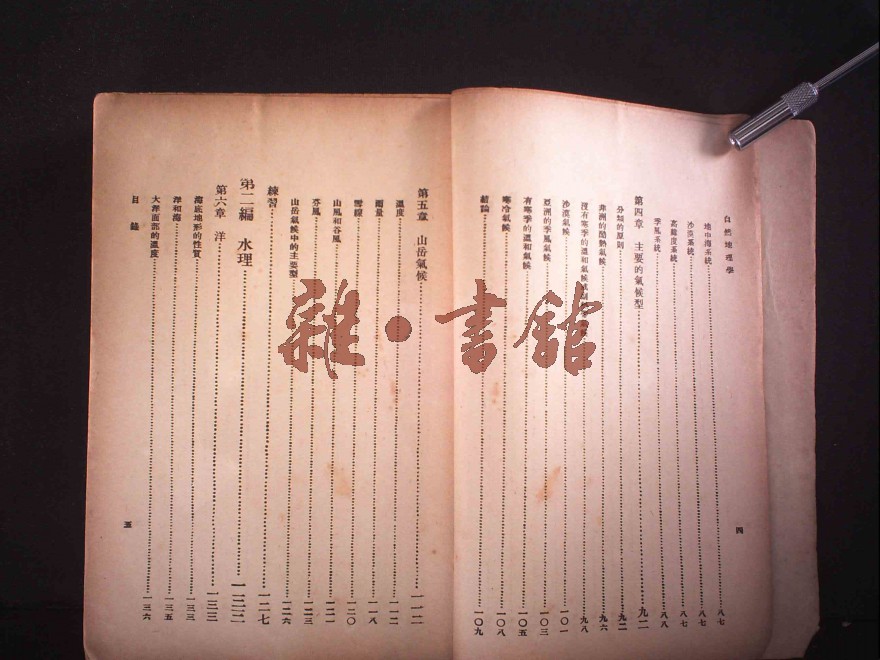 自然地理學
地中海系統……八七
沙漠系統……八七
高緯度系統……八七
季風系統……八八
第四章 主要的氣候型……九二
分類的原則……九二
非洲的酷熱氣候……九六
沒有寒季的溫和氣候……九八
沙漠氣候……一〇一
亞洲的季風氣候……一〇三
有寒季的溫和氣候……一〇五
寒冷氣候……一〇八
結論……一〇九
四
第五章 山岳氣候……一一二
溫度……一一二
雨量……一一八
雪線……一二〇
山風和谷風……一二一
芬風……一二三
山岳氣候中的主要型……一二六
練習……一二七
第二編 水理……一三三
第六章 洋……一三三
海底地形的性質……一三三
洋和海……一三五
大洋面部的溫度……一三六
目錄
五
雜·書館